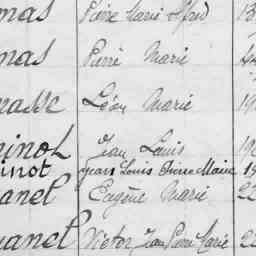 mas Pierre Marie Alfred 13
mas Pierre Marie
Léon Marie 19
inot Jean Louis 19
inot Jean Louis Pierre Marie 19
anel Eugène Marie 22
anel Victor Jean Pierre Marie 22